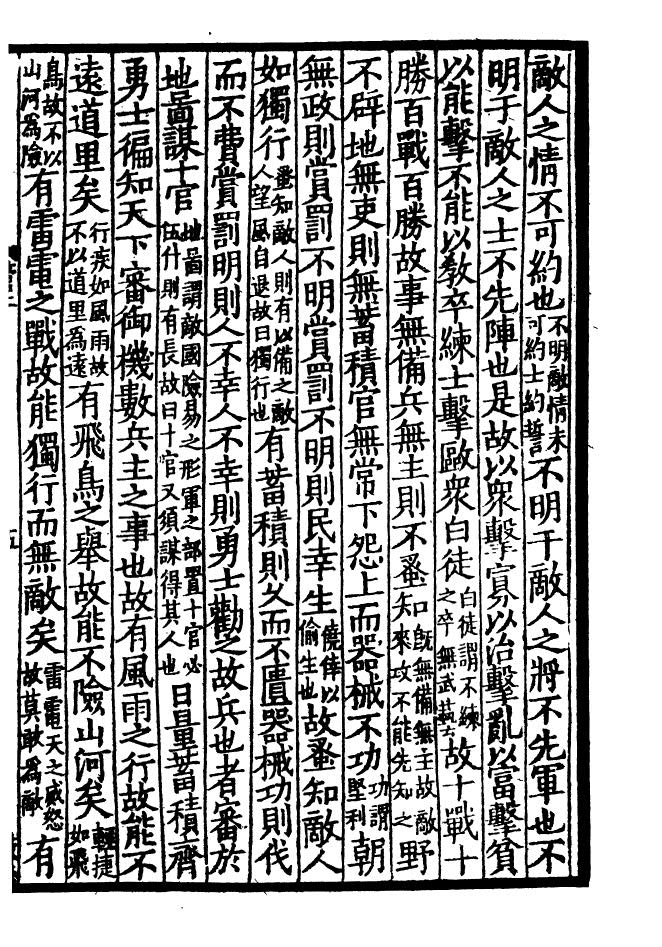 敵人之情不可約也不明敵情未可約士約誓不明于敵人之將不先軍也不
明于敵人之士不先陣也是故以衆擊寡以治擊亂以富擊貧
以能擊不能以敎卒練士擊敺衆白徒白徒謂不練之卒無武藝故十戰十
勝百戰百勝故事無備兵無主則不蚤知旣無備無主故敵來攻不能先知之野
不辟地無吏則無蓄積官無常下怨上而器械不功功謂堅利朝
無政則賞罰不明賞罰不明則民幸生僥倖以偷生也故蚤知敵人
如獨行蚤知敵人則有以備之敵人望風自退故曰獨行也有蓄積則久而不匱器械功則伐
而不費賞罰明則人不幸人不幸則勇士勸之故兵也者審於
地啚謀十官地啚謂敵國險易之形軍之部置十官必伍什則有長故曰十官又須謀得其人也日量蓄積齊
勇士徧知天下審御機數兵主之事也故有風雨之行故能不
遠道里矣行疾如風雨故不以道里爲遠有飛鳥之舉故能不險山河矣輕捷如飛
鳥故不以山河爲險有雷電之戰故能獨行而無敵矣雷電天之威怒故莫敢爲敵有